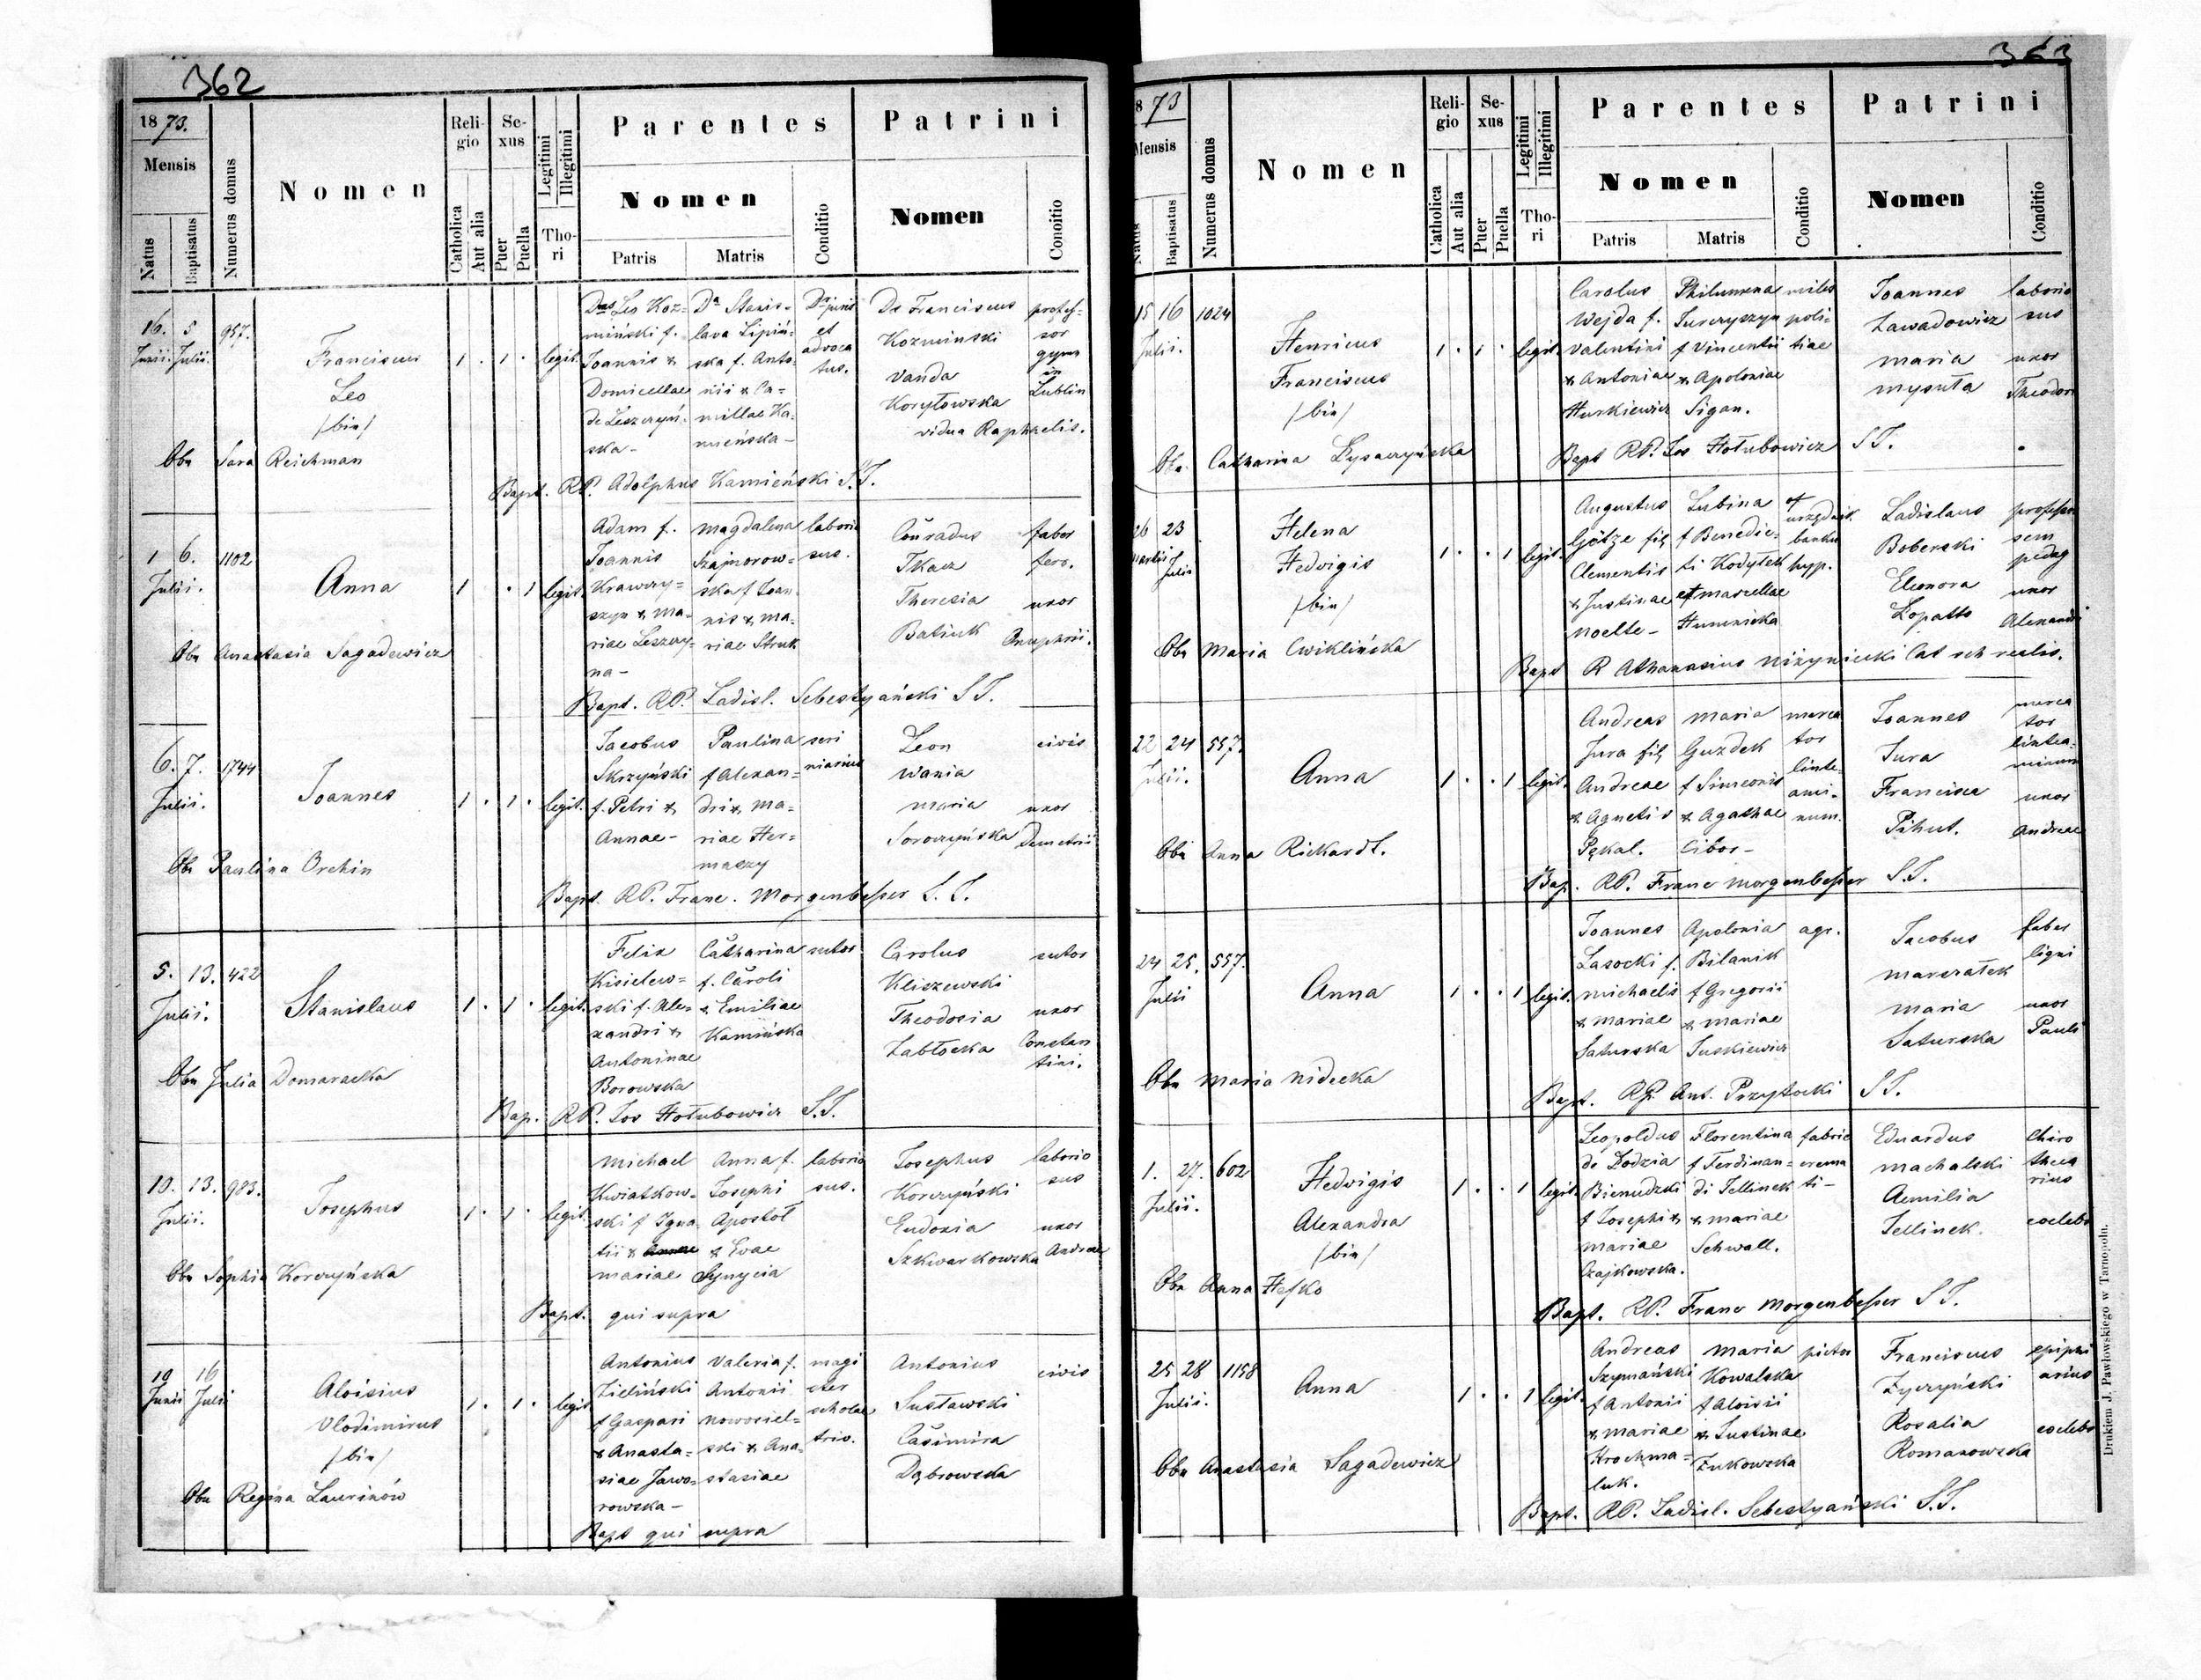 362
18 73.
Mensis
Natus
Baptisatus
Numerus domus
Nomen
Reli-
gio
Catholica
Aut alia
Se-
xus
Puer
Puella
Legitimi
Illegitimi
Tho-
ri
Parentes
Nomen
Patris
Matris
Conditio
Patrini
Nomen
Conditio
16. 5 957.
Junii. Julii.
Franciscus
Leo
/bin/
1 . 1 . legit.
Dnus Leo Koz-
miński f.
Joannis &
Domicellae
de Leszczyń-
ska -
Da Stanis-
lava Lipiń-
ska f. Anto-
nii & Ca-
millae Ka-
mieńska -
Dr juris
et
advoca
tus.
Ds Franciscus
Kozminski
Vanda
Korytowska
vidua Raphaelis.
profes-
sor
gymn
in
Lublin
Obs Sara Reichman
Bapt. RP. Adolphus Kamieński S.J.
1 6. 1102
Julii.
Anna
1 . 1 legit.
Adam f.
Joannis
Krawczy-
szyn & Ma-
riae Leszczy-
na -
Magdalena
Szajnorow-
ska f Joan
nis & Ma-
riae Struk
laborio
sus.
Conradus
Tkacz
Theresia
Batiuk
faber
fero.
uxor
Onuphrii.
Obs Anastasia Sagadewicz
Bapt. RP. Ladisl. Sebestyański S J.
6. 7. 1744
Julii.
Joannes
1 . 1 . legit.
Jacobus
Skrzyński
f. Petri &
Annae -
Paulina
f Alexan-
dri & Ma-
riae Her-
maszy
scri
niarius
Leon
Wania
Maria
Soroczyńska
civis
uxor
Demetrii
Obs Paulina Orchin
Bapt. RP. Franc. Morgenbesser S. J.
5. 13. 422
Julii.
Stanislaus
1 . 1 . legit.
Felix
Kisielew-
ski f. Ale-
xandri &
Antoninae
Borowska
Catharina
f. Caroli
& Emiliae
Kamińska
sutor
Carolus
Kliszewski
Theodosia
Zabłocka
sutor
uxor
Constan
tini.
Obs Julia Domaracka
Bap. RP. Jos Hołubowicz S.J.
10. 13. 983.
Julii.
Josephus
1 . 1 . legit.
Michael
Kwiatkow-
ski f Igna
tii &
Mariae
Anna f.
Josephi
Apostoł
& Evae
Synycia
laborio
sus.
Josephus
Korczyński
Eudoxia
Szkwarkowska
laborio
sus
uxor
Andreae
Obs Sophia Korczyńska
Bapt. qui supra
10 16
Junii Julii
Aloisius
Vlodimirus
/bin/
1 . 1 . legit
Antonius
Zieliński
f Gaspari
& Anasta-
siae Jawo-
rowska -
Valeria f.
Antonii
Nowosiel-
ski & Ana-
stasiae
magi
ster
scholae
triv.
Antonius
Susławski
Casimira
Dąbrowska
civis
Obs Regina Laurinów
Bapt qui supra
363
18 73
Mensis
Natus
Baptisatus
Numerus domus
Nomen
Reli-
gio
Catholica
Aut alia
Se-
xus
Puer
Puella
Legitimi
Illegitimi
Tho-
ri
Parentes
Nomen
Patris
Matris
Conditio
Patrini
Nomen
Conditio
15 16 1024
Julii.
Henricus
Franciscus
/bin/
1 . 1 . legit.
Carolus
Wejda f.
Valentini
& Antoniae
Hurkiewicz
Philumena
Surczyszyn
f Vincentii
& Apoloniae
Sigan.
miles
poli-
tiae
Joannes
Zawadowicz
Maria
Mysuła
laborio
sus
uxor
Theodori
Obs. Catharina Łysaczyńska
Bapt RP. Jos Hołubowicz S J.
26 23
Martii Julii
Helena
Hedvigis
/bin/
1 . . 1 legit.
Augustus
Götze fil
Clementis
& Justinae
Noelte -
Lubina
f Benedic-
ti Kodytek
et Marcellae
Humnicka
of
urzędnik.
banku
hyp.
Ladislaus
Boberski
Eleonora
Łopatto
professor
sem
pedag
uxor
Alexandri
Obs Maria Cwiklińska
Bapt R Athanasius Niżyniecki Cat sch realis.
22 24 557.
Julii.
Anna
1 . . 1 legit.
Andreas
Jura fil
Andreae
& Agnetis
Pękal.
Maria
Guzdek
f Simeonis
& Agathae
Cibor -
merca
tor
linte-
ami-
num.
Joannes
Jura
Francisca
Pihut.
merca
tor
lintea-
minum
uxor
Andreae
Obs Anna Rickardt.
Bap. RP. Franc Morgenbesser S.J.
24 25. 557.
Julii
Anna
1 . . 1 legit.
Joannes
Lasocki f.
Michaelis
& Mariae
Saturska
Apolonia
Bilanik
f Gregorii
& Mariae
Juskiewicz
agr.
Jacobus
Marszałek
Maria
Saturska
faber
ligni
uxor
Pauli
Obs Maria Nidecka
Bapt. RP. Ant. Przytocki S J.
1. 27. 602
Julii.
Hedvigis
Alexandra
/bin/
1 . . 1 legit.
Leopoldus
de Łodzia
Bienudzki
f Josephi &
Mariae
Czajkowska.
Florentina
f Ferdinan-
di Jellinek
& Mariae
Schwall.
fabric
crema
ti -
Eduardus
Machalski
Aemilia
Jellinek.
Chiro
theca
rius
coelebs
Obs Anna Hefko
Bapt. RP. Franc Morgenbesser S J.
25 28 1158
Julii.
Anna
1 . . 1 legit.
Andreas
Szymański
f Antonii
& Mariae
Krochma-
luk.
Maria
Kowalska
f Aloisii
& Justinae
Żukowska
pictor
Franciscus
Zyczyński
Rosalia
Romanowska
ephipi
arius
coelebs
Obs Anastasia Sagadewicz
Bapt. RP. Ladisl. Sebestyański S.J.
Drukiem J. Pawłowskiego w Tarnopolu.